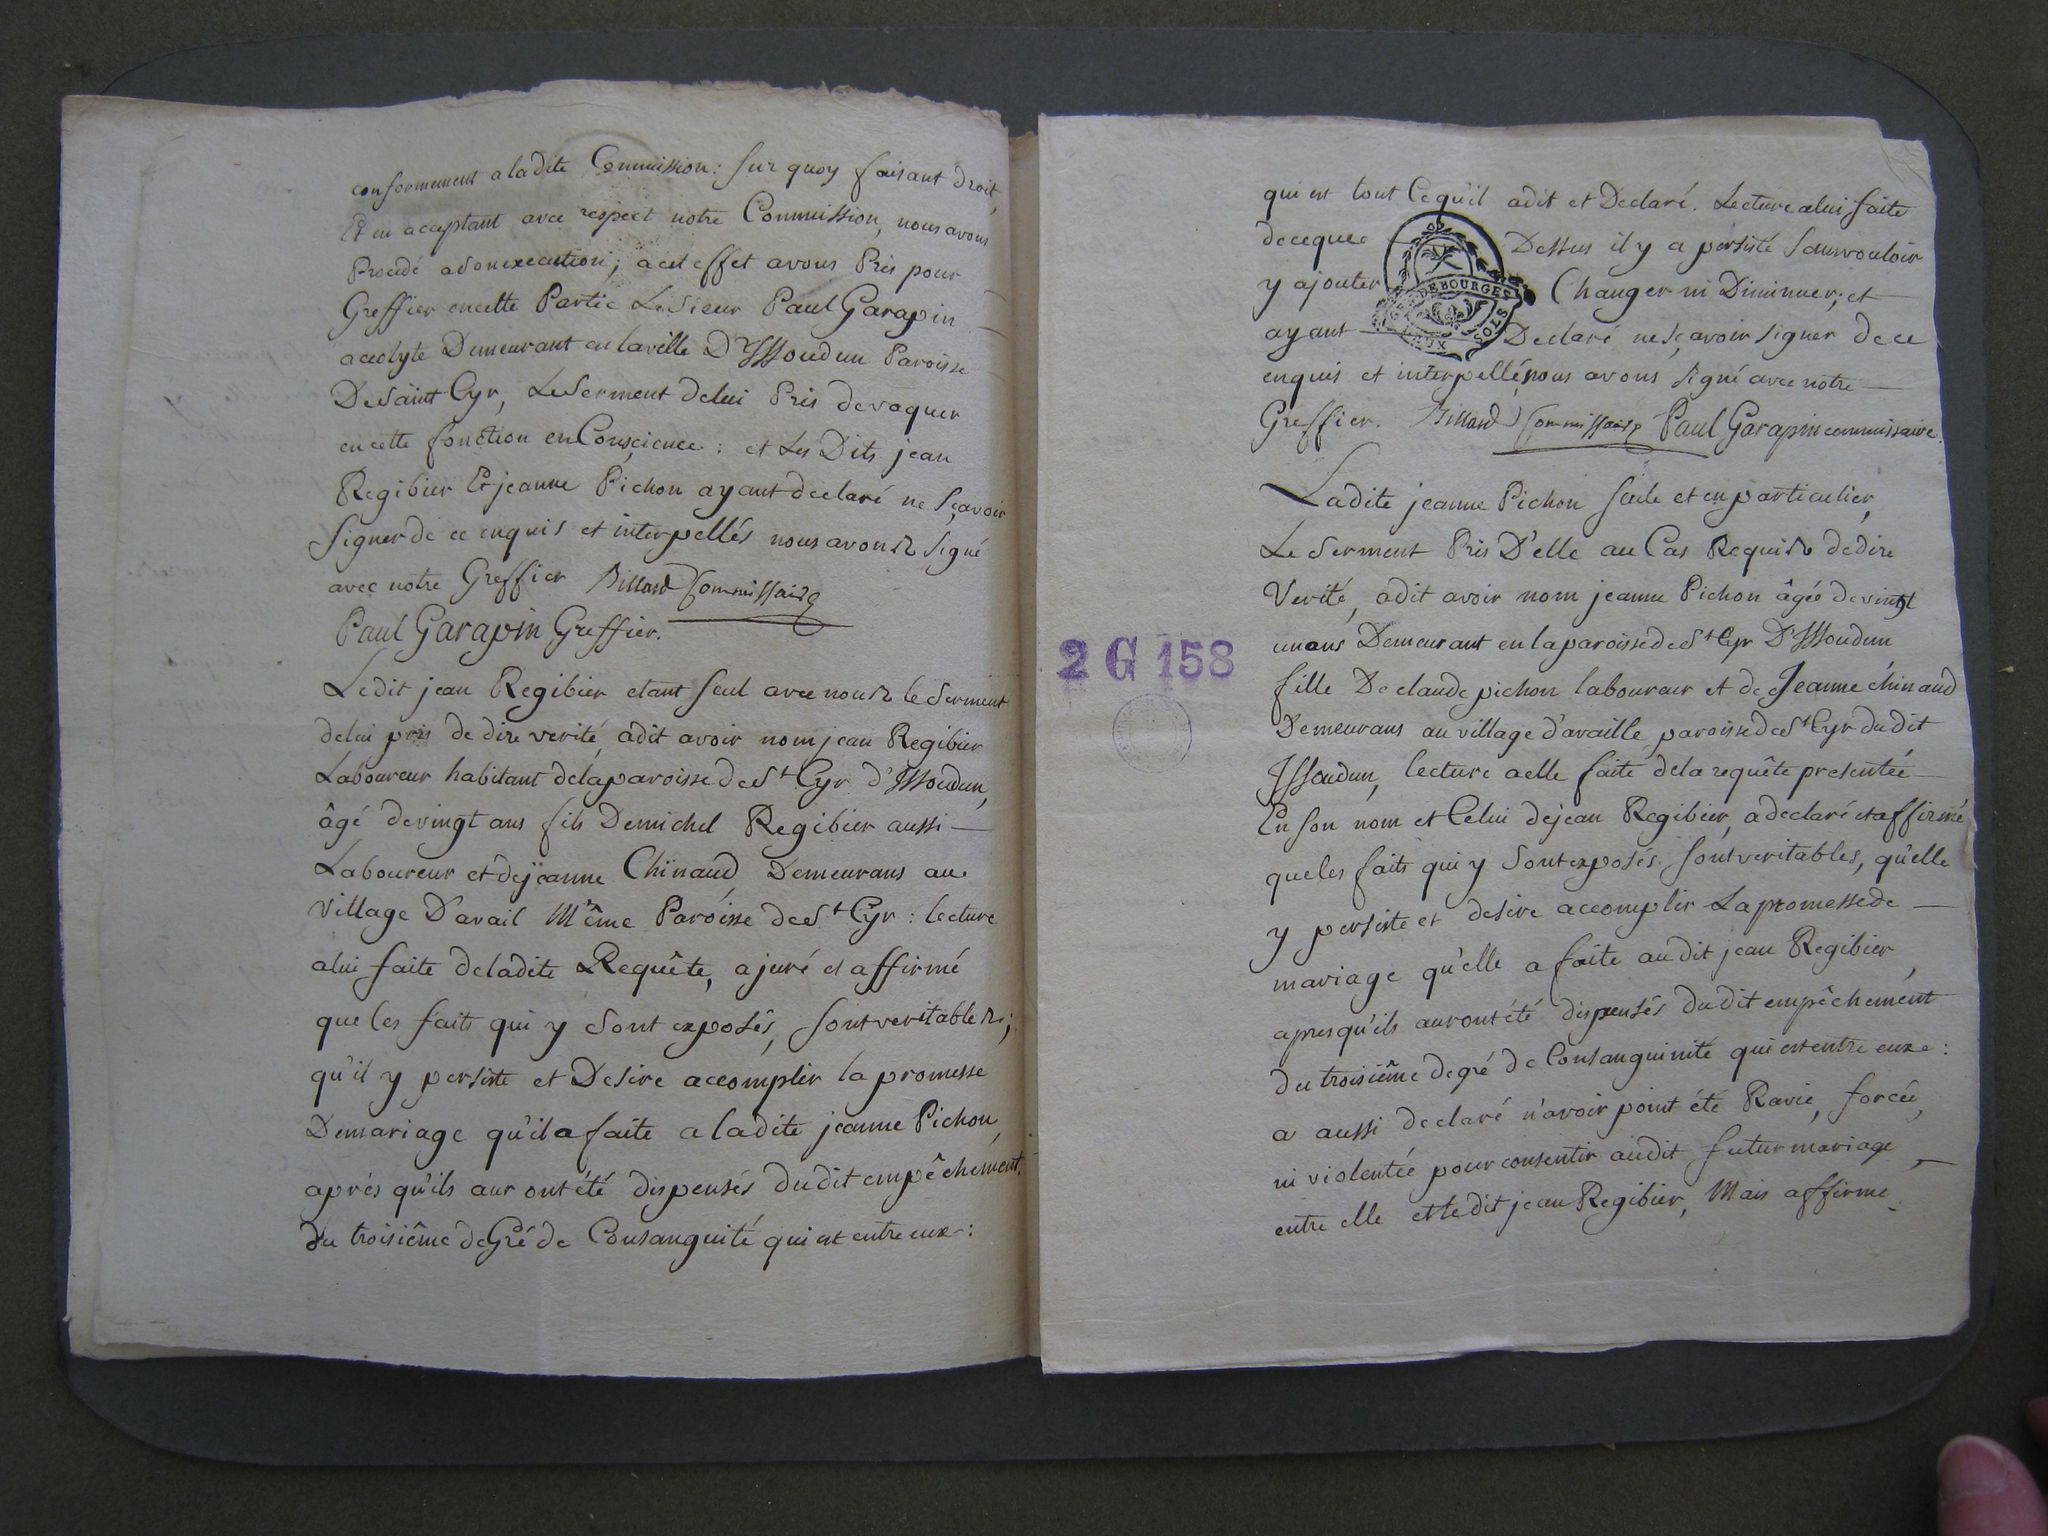 conformement a ladite Commission: sur quoy faisant droit,
Et en acceptant avec respect notre Commission, nous avons
Procédé a son execution; a cet effet avons Pris pour
Greffier en cette Partie Le Sieur Paul Garapin
accolyte Demeurant en la ville D'Yssoudun Paroisse
De Saint Cyr, Le Serment de lui Pris de vaquer
en cette fonction en Conscience: et Les Dits jean
Regibier Et jeanne Pichon ayant declaré ne Sçavoir
Signer de ce enquis et interpellés nous avons signé
avec notre Greffier Billard Commissaire
Paul Garapin Greffier.
Le dit jean Regibier etant seul avec nous le Serment
de lui pris de dire verité, a dit avoir nom jean Regibier
Laboureur habitant de la paroisse de St Cyr d'Issoudun,
âgé de vingt ans fils De michel Regibier aussi
Laboureur et de jeanne Chinaud Demeurans au
Village D'avail Même Paroisse de St Cyr: lecture
a lui faite de ladite Requête, a juré et affirmé
que les faits qui y Sont exposés, sont veritables;
qu'il y persiste et Desire accomplir la promesse
De mariage qu'il a faite a ladite jeanne Pichon,
aprés qu'ils auront été dispensés du dit empêchement.
du troisiême deGré de Consanguité qui est entre eux:
qui est tout Ce qu'il a dit et Declaré. Lecture a lui faite
de ce que Dessus il y a persisté sans vouloir
y ajouter Changer ni Diminuer; et
ayant Declaré ne sçavoir signer de ce
enquis et interpellé, nous avons signé avec notre
Greffier. Billard Commissaire Paul Garapin commissaire.
DE BOURGES
SOLS
Ladite jeanne Pichon seule et en particulier,
Le Serment Pris D'elle au Cas Requis de dire
Verité, a dit avoir nom jeanne Pichon âgée de vingt
un ans Demeurant en la paroisse de St Cyr D'Issoudun
fille De claude pichon laboureur et de Jeanne chinaud
Demeurans au village d'availle paroisse de St Cyr du dit
Issoudun, lecture a elle faite de la requête presentée
En son nom et Celui de jean Regibier, a declaré et affirmé
que les faits qui y Sont exposés. sont veritables, qu'elle
y persiste et desire accomplir La promesse de
mariage qu'elle a faite au dit jean Regibier,
apres qu'ils auront été dispensés du dit empêchement
du troisiême degré de Consanguinité qui est entre eux:
a aussi declaré n'avoir point été Ravie, forcée,
ni violentée pour consentir au dit futur mariage,
entre elle et le dit jean Regibier, Mais affirme.
2 G 158